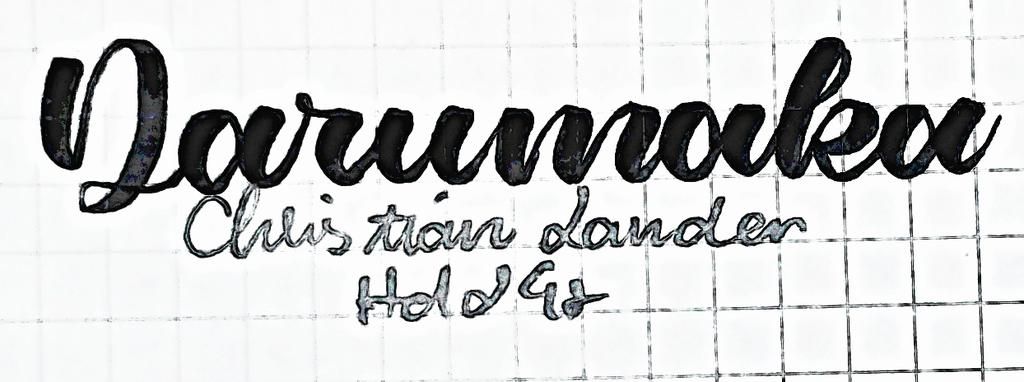 Darumaka
Christian Lander
Hold